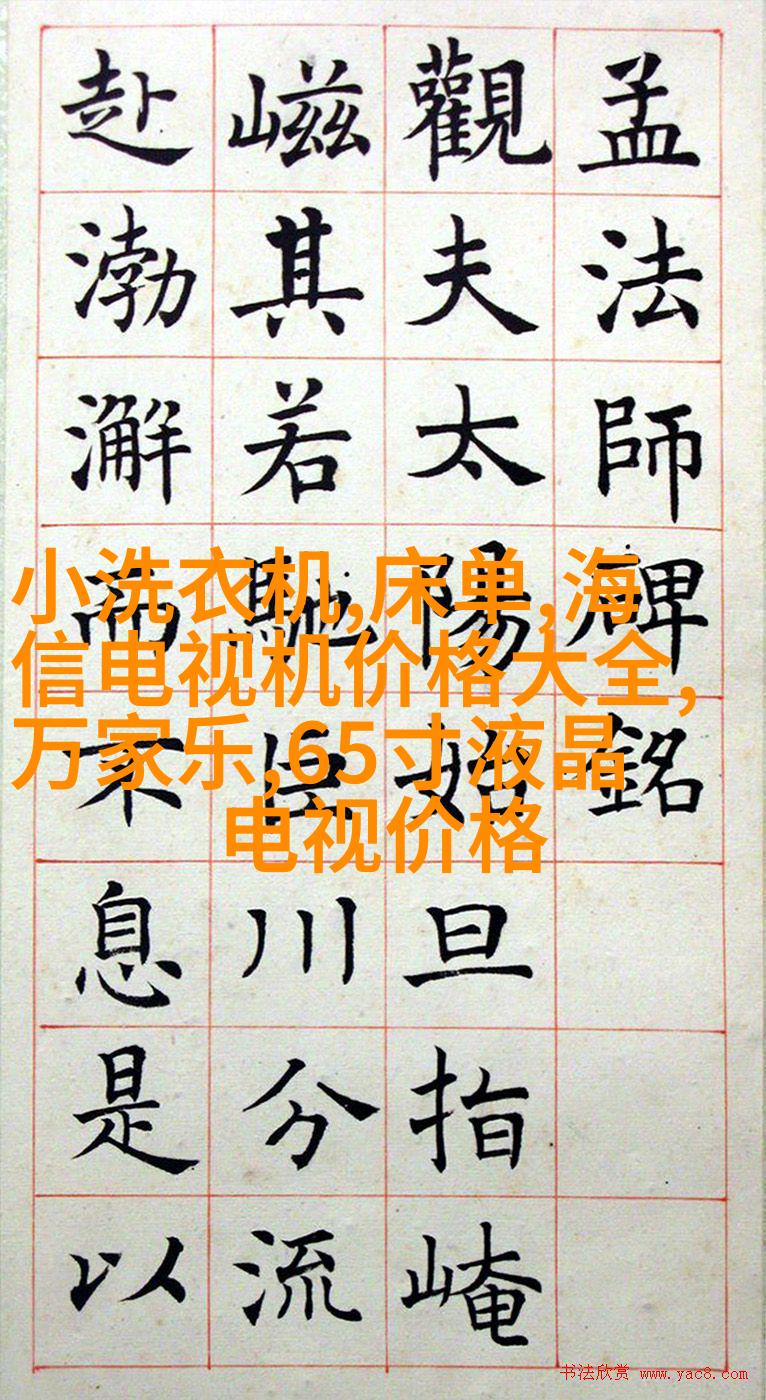 孟法師碑銘
觀夫太陽始旦指崦
嵫其若馳巨川分流
赴渤澥而不息是以
小洗衣机,床单,海
信电视机价格大全,
万家乐,65寸液晶
电视价格
书法欣赏 www.yac8.com